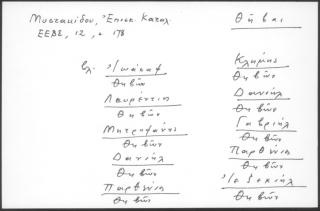 Μυστακίδου, Ἐπισκ. Κατάλ.
ΕΕΒΣ, 12, σ 178
Θῆβαι
βλ. Ἰωάσαφ
Θηβῶν
Λαυρέντιος
Θηβῶν
Μητροφάνης
Θηβῶν
Δανιήλ
Θηβῶν
Παρθένιος
Θηβῶν
Κλήμης
Θηβῶν
Δανιήλ
Θηβῶν
Γαβριήλ
Θηβῶν
Παρθένιος
Θηβῶν
Ἰεζεκιήλ
Θηβῶν